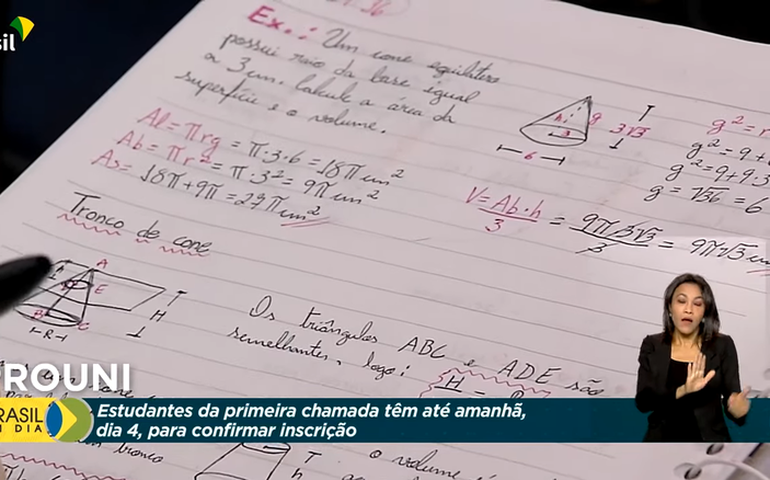 sil
Ex.: Um cone equilátero
possui raio da base igual
a 3 cm. Calcule a área da
superfície e o volume.
Al = πrg = π·3·6 = 18π cm²
Ab = πr² = π·3² = 9π cm²
As = 18π + 9π = 27π cm²
h
g
3√3
3
6
g² = r
g² = 9 +
g² = 9 + 9·3
g = √36 = 6
V = Ab·h = 9π 3√3 = 9π√3 cm
3
3
Tronco de cone
A
E
B
C
R
T
H
Os triângulos ABC e ADE são
semelhantes, logo:
H
PROUNI
BRASIL
EM DIA
Estudantes da primeira chamada têm até amanhã,
dia 4, para confirmar inscrição
tronco
T
h
o volume é